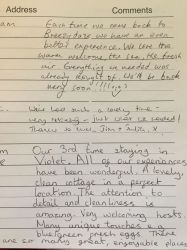 Address Comments
am Each time we come back to
Breezydaze we have an even
better experience. We love the
warm welcome, the sea, the fresh
air. Everything is needed was
already thought of. We'll be back
very soon!!!!
Have had such a lovely time -
very relaxing - just what we needed!
Thanks so much, Jim +
m Our 3rd time staying in
e Violet. All of our experiences
have been wonderful. A lovely,
clean cottage in a perfect
location. The attention to
detail and cleanliness is
amazing. Very welcoming hosts.
Many unique touches e.g.
blue/green fresh eggs. There
are so many great, enjoyable places